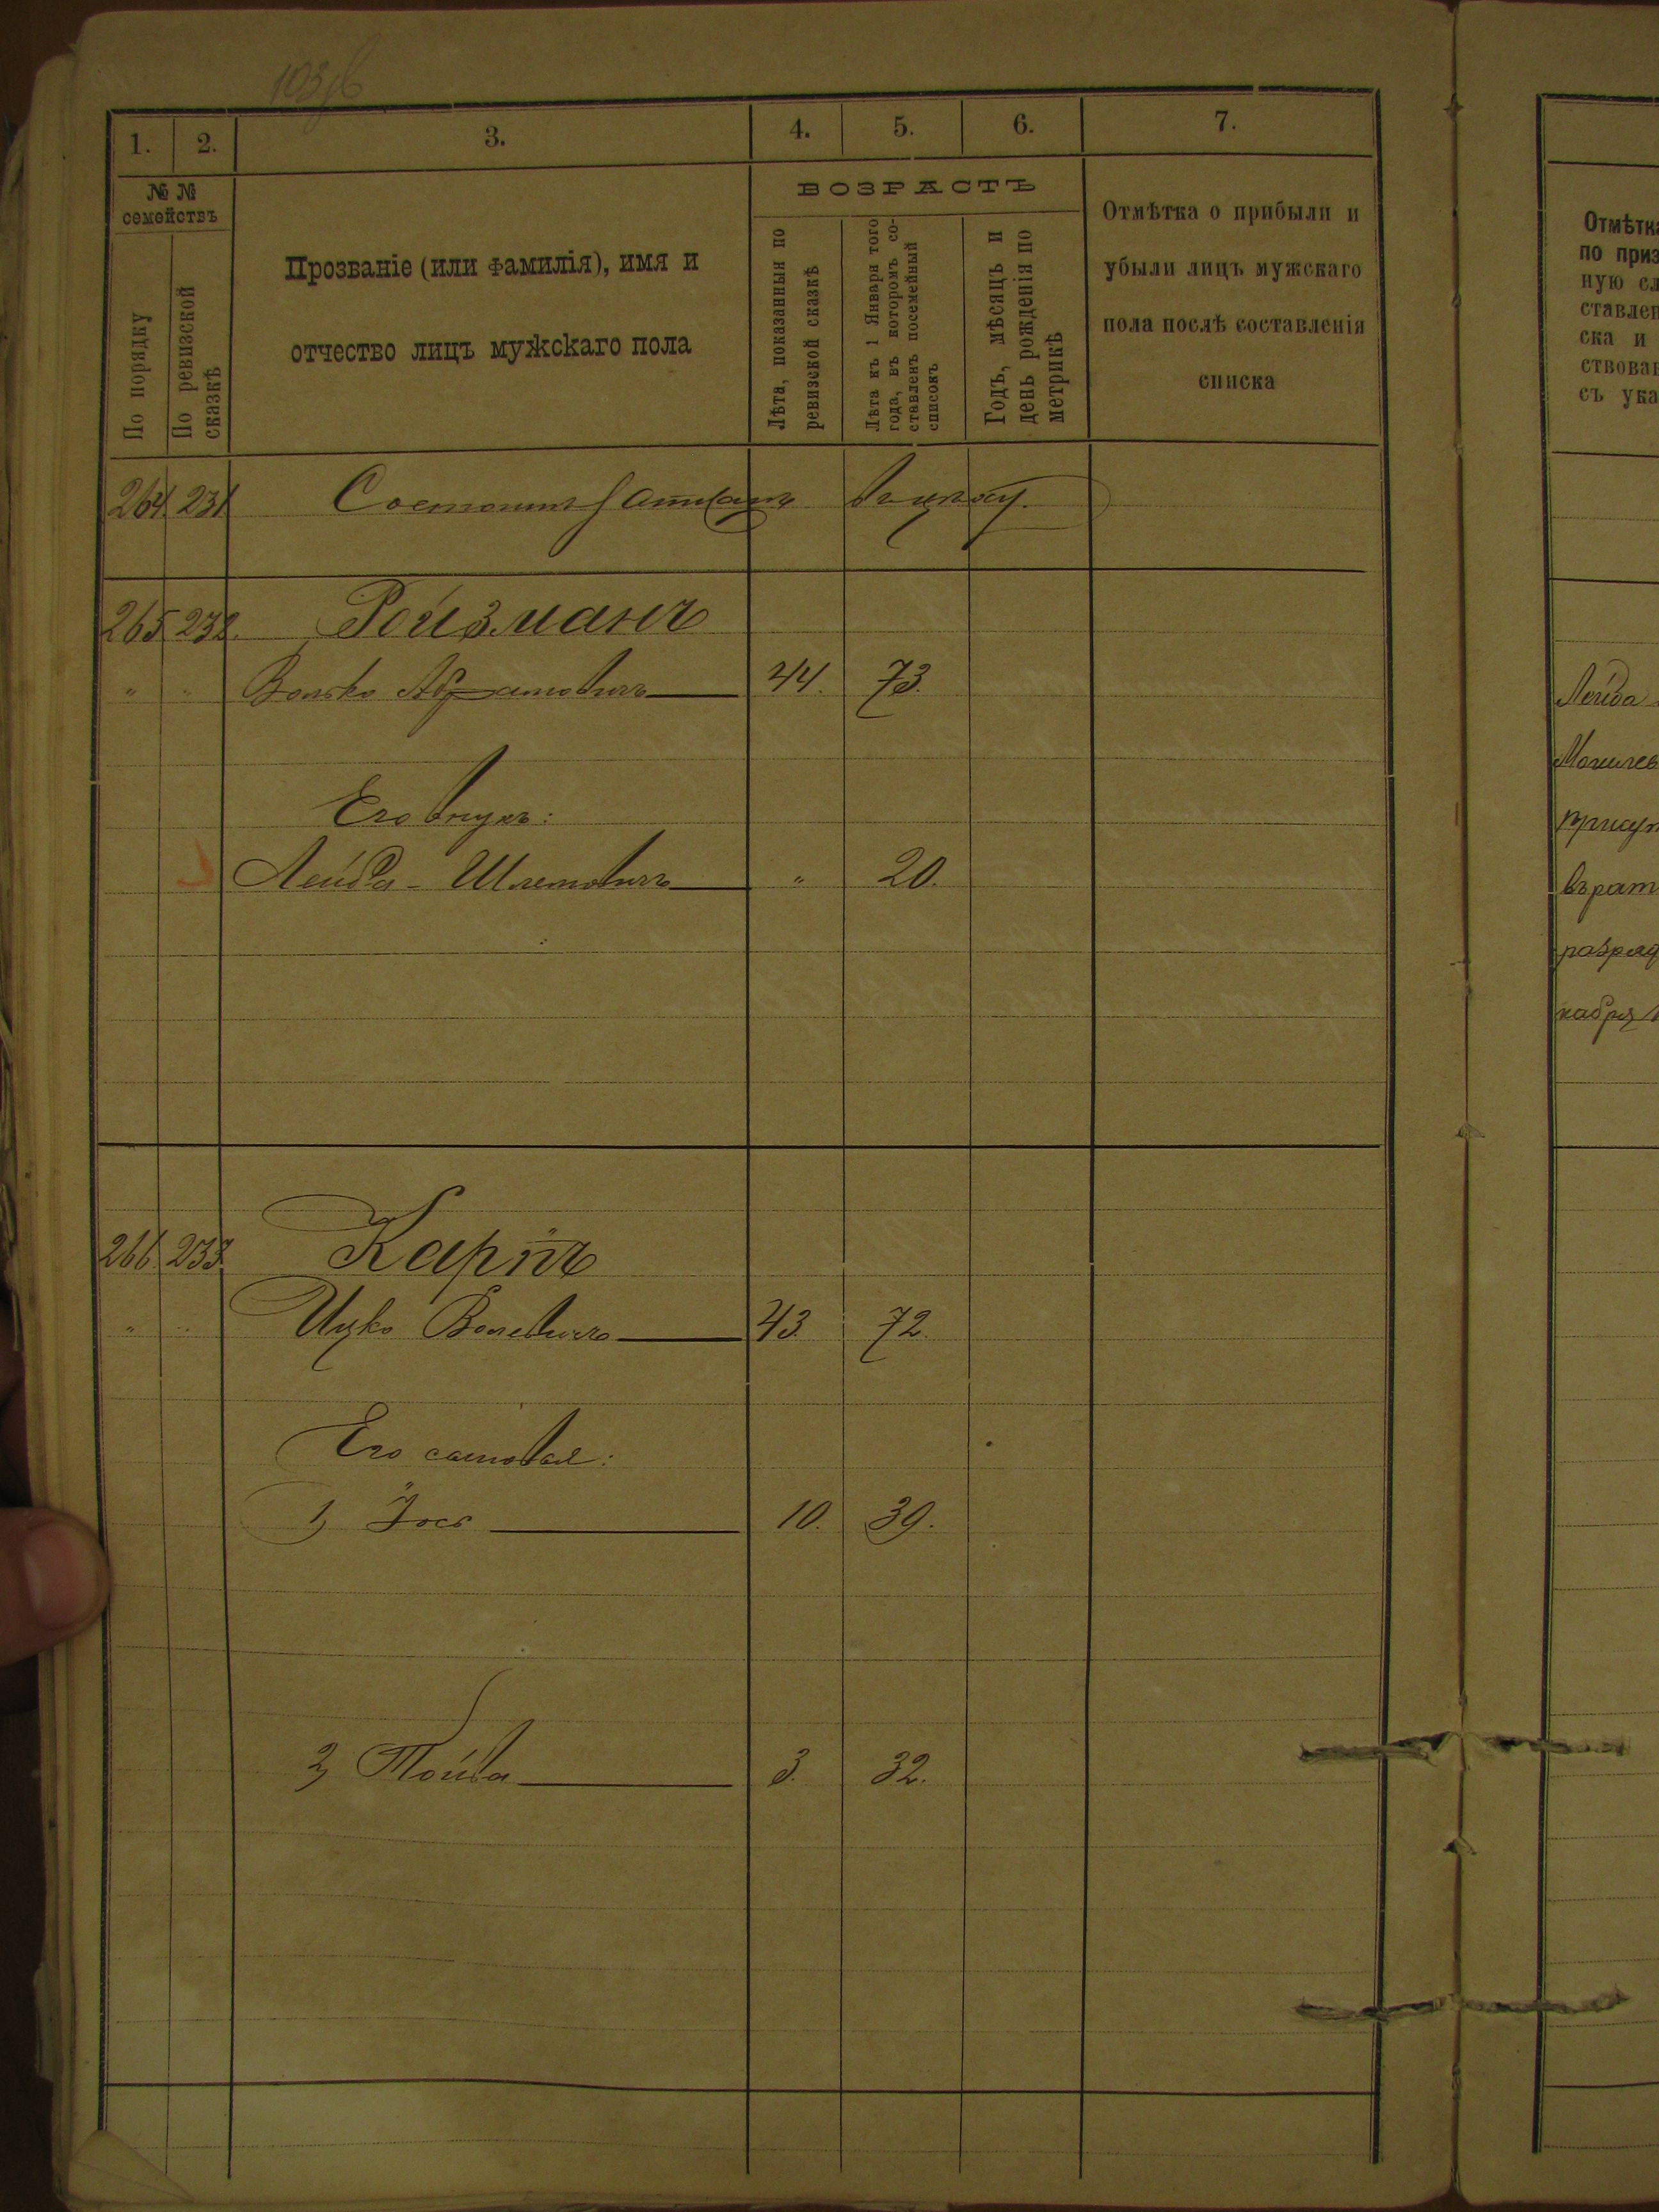 1. 2. 3. 4. 5. 6. 7.
№ № семействъ
По порядку
По ревизской сказкѣ
Прозваніе (или фамилія), имя и
отчество лицъ мужскаго пола
ВОЗРАСТЪ
Лѣта, показанныя по
ревизской сказкѣ
Лѣта къ 1 Января того
года, въ которомъ со-
ставленъ посемейный
списокъ
Годъ, мѣсяцъ и
день рожденія по
метрикѣ
Отмѣтка о прибыли и
убыли лицъ мужскаго
пола послѣ составленія
списка
264. 231. Состоитъ
265 232. Ройзманъ
" " Волько Абрамовичъ 44. 73.
Его внукъ:
Лейба - Шлемовичъ " 20.
266. 233. Карпъ
" " Ицко Волевичъ 43. 72.
Его сыновья:
1, Іось 10. 39.
2, Тойва 3. 32.
Отмѣтка
по приз
ную сл
ставлен
ска и
ствован
съ ука
Лейба
Могилев
присут
въ рат
разряд
кабря